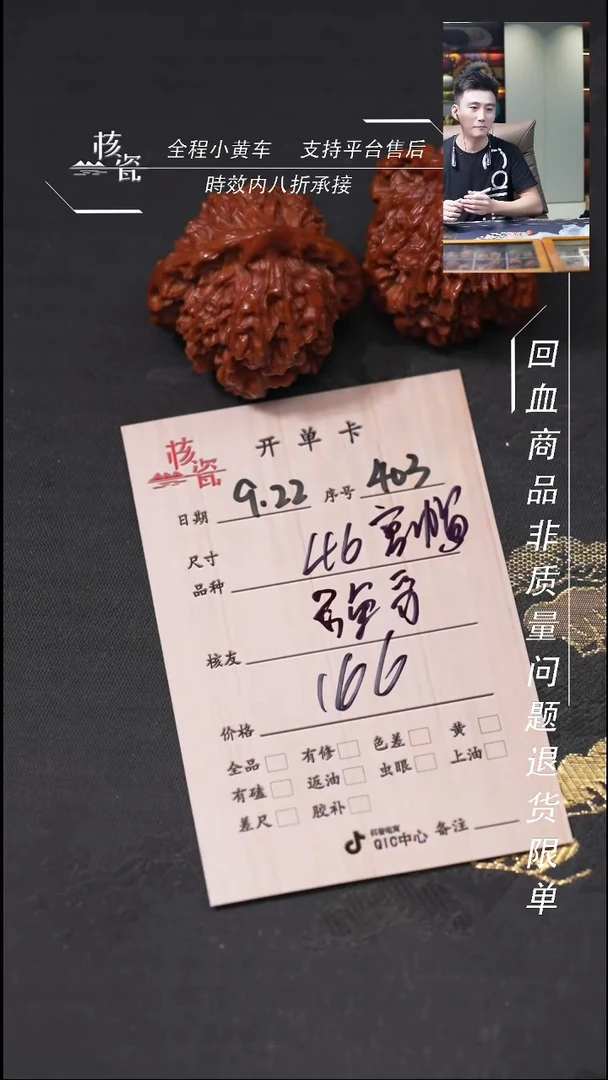 核瓷
全程小黄车 支持平台售后
時效内八折承接
回血商品非质量问题退货限单
核瓷
开单卡
日期 9.22 序号 403
尺寸 46官帽
品种
核友
166
价格
全品 有修 色差 黄
有磕 返油 虫眼 上油
差尺 胶补
抖音电商
QIC中心 备注